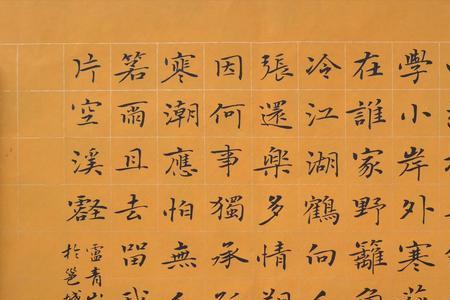 學小岸外寒
在誰家野籬
冷江湖鶴向
張還樂多情
因何事獨承
寒潮應怕無
箬雨且去留
片空溪
盧青
於